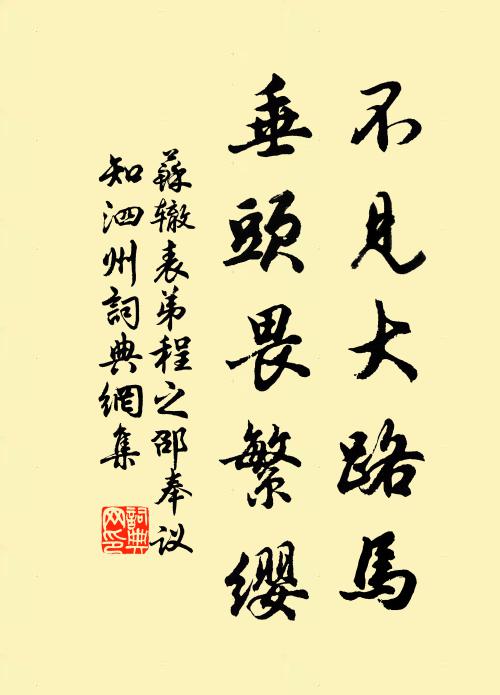 不見大路馬
垂頭畏繁纓
蘇辙表弟程之邵奉议
知泗州詞典網集
詞典網印